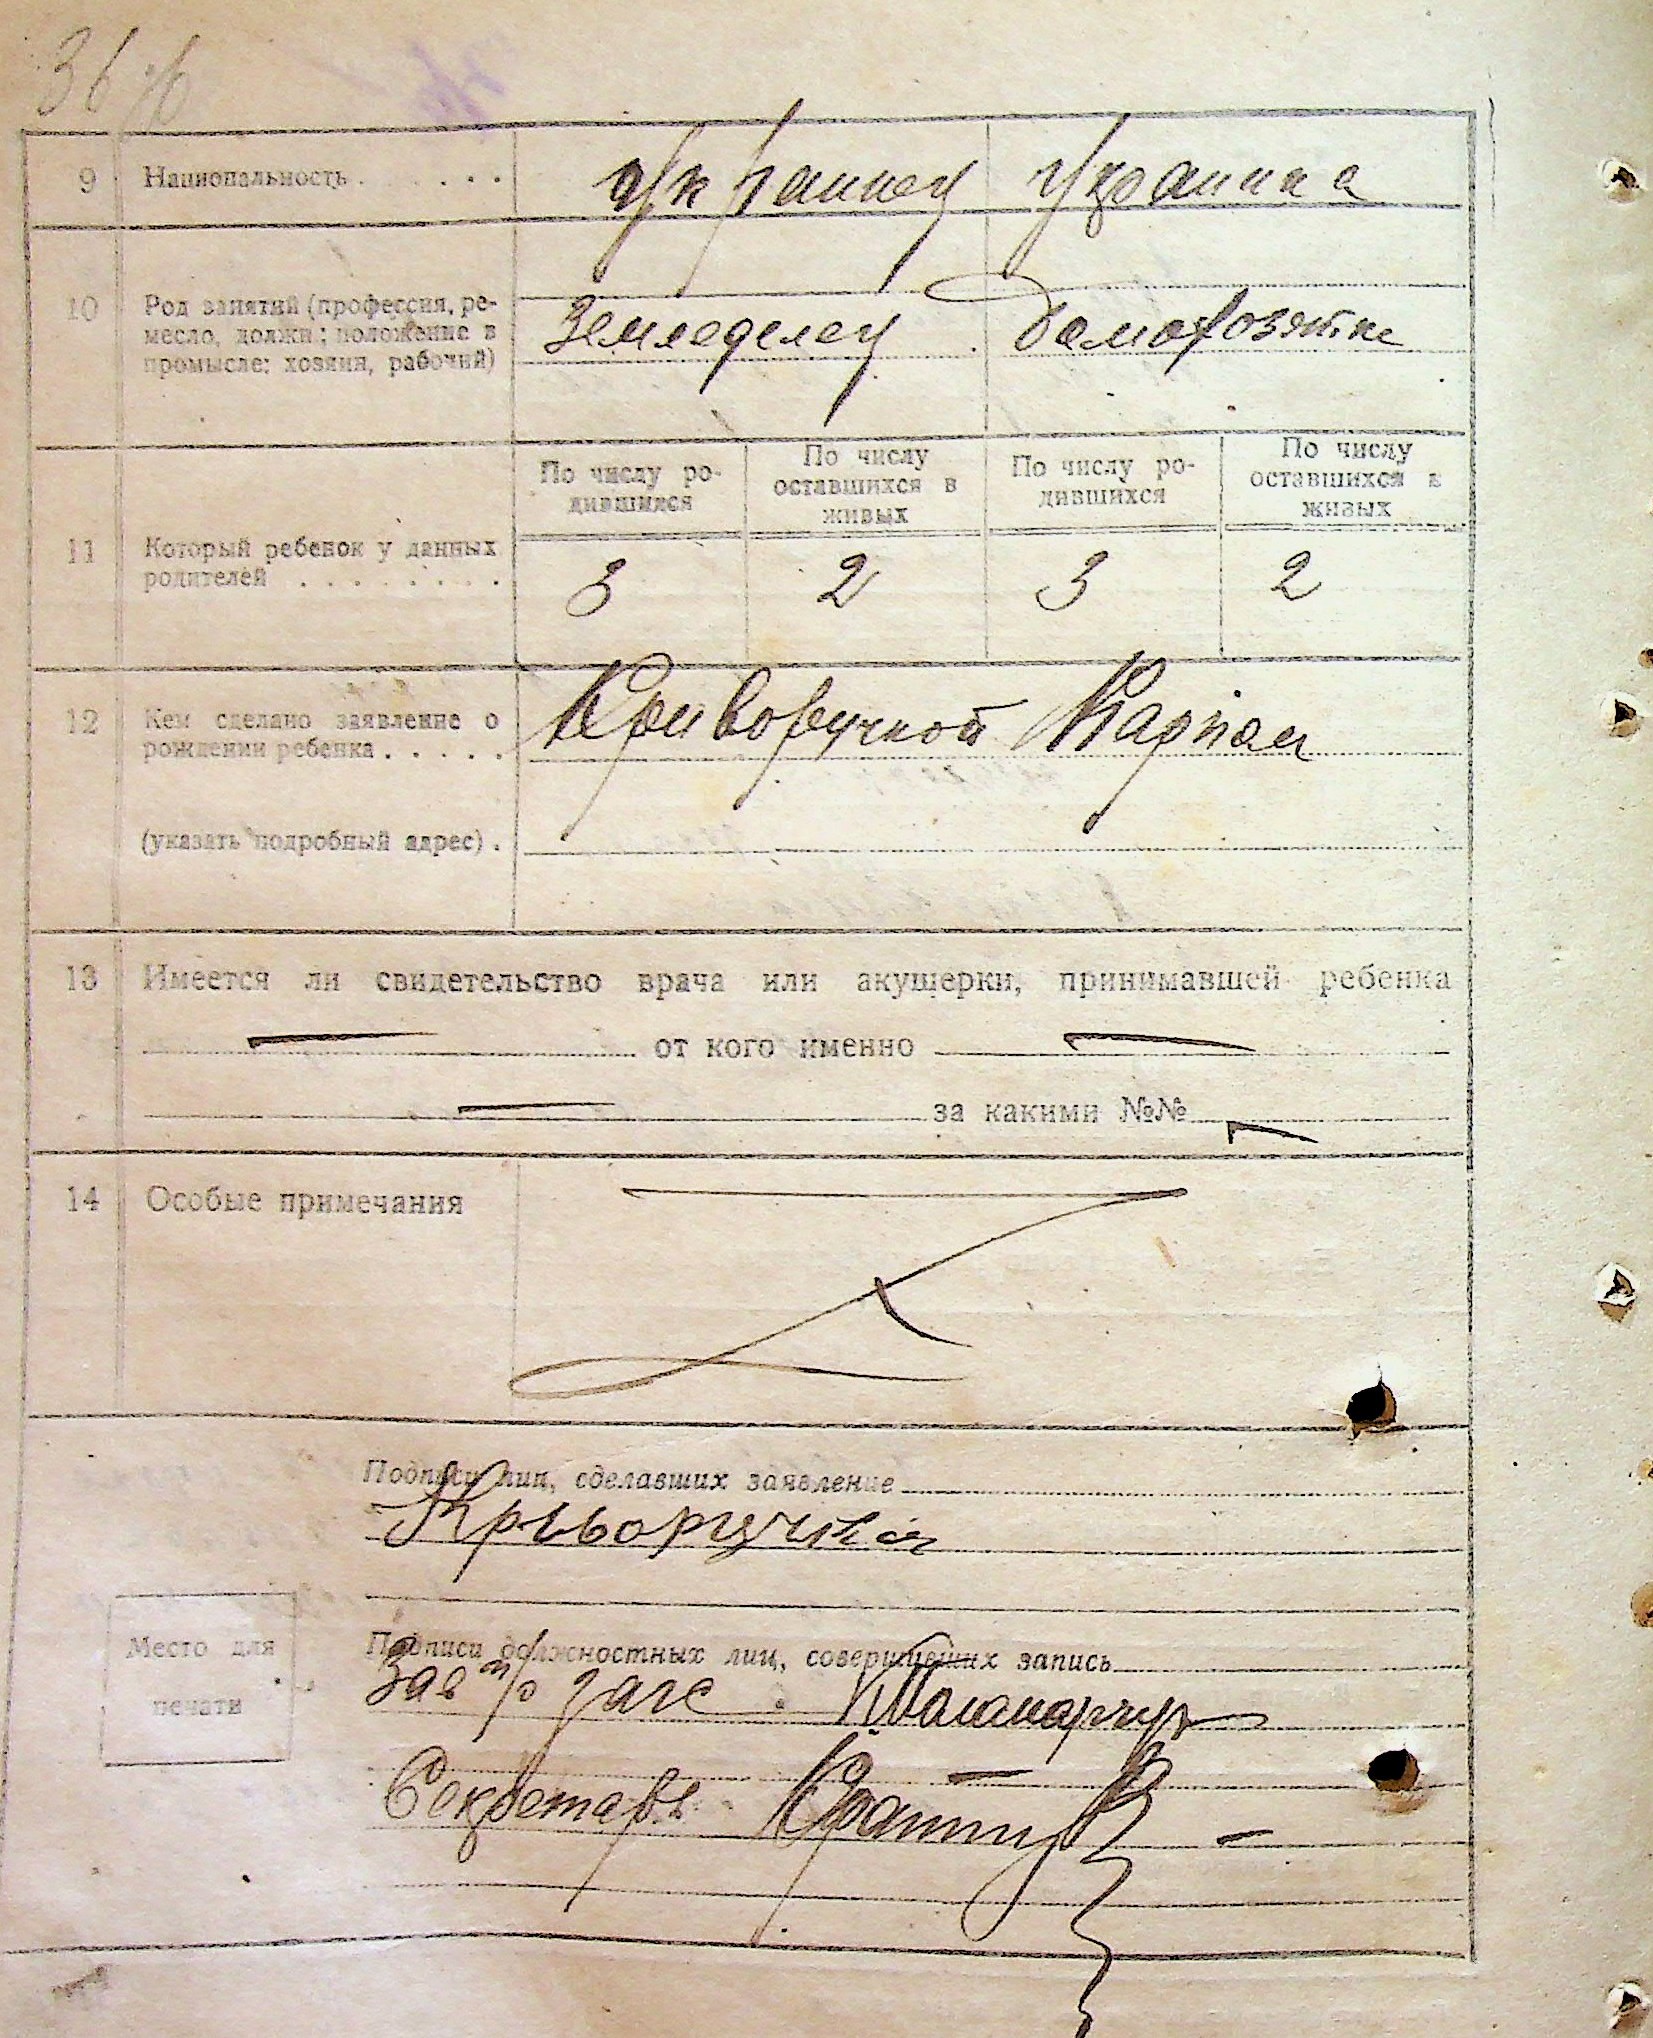 36 об
9 Национальность Украинец Украинка
10 Род занятий (профессия, ре-
месло, должн; положение в
промысле: хозяин, рабочий)
Земледелец Домохозяйка
По числу ро-
дившихся
По числу
оставшихся в
живых
По числу ро-
дившихся
По числу
оставшихся в
живых
11 Который ребенок у данных
родителей
3 2 3 2
12 Кем сделано заявление о
рождении ребенка
Криворучкой Карпом
(указать подробный адрес)
13 Имеется ли свидетельство врача или акушерки, принимавшей ребенка
— от кого именно —
— за какими №№ —
14 Особые примечания
Подписи лиц, сделавших заявление
Крыворучка
Место для
печати
Подписи должностных лиц, совершивших запись
Зав п/о загс
Секретарь